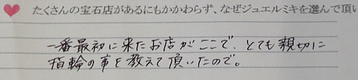 たくさんの宝石店があるにもかかわらず、なぜジュエルミキを選んで頂い
一番最初に来たお店がここで、とても親切に
指輪の事を教えて頂いたので。